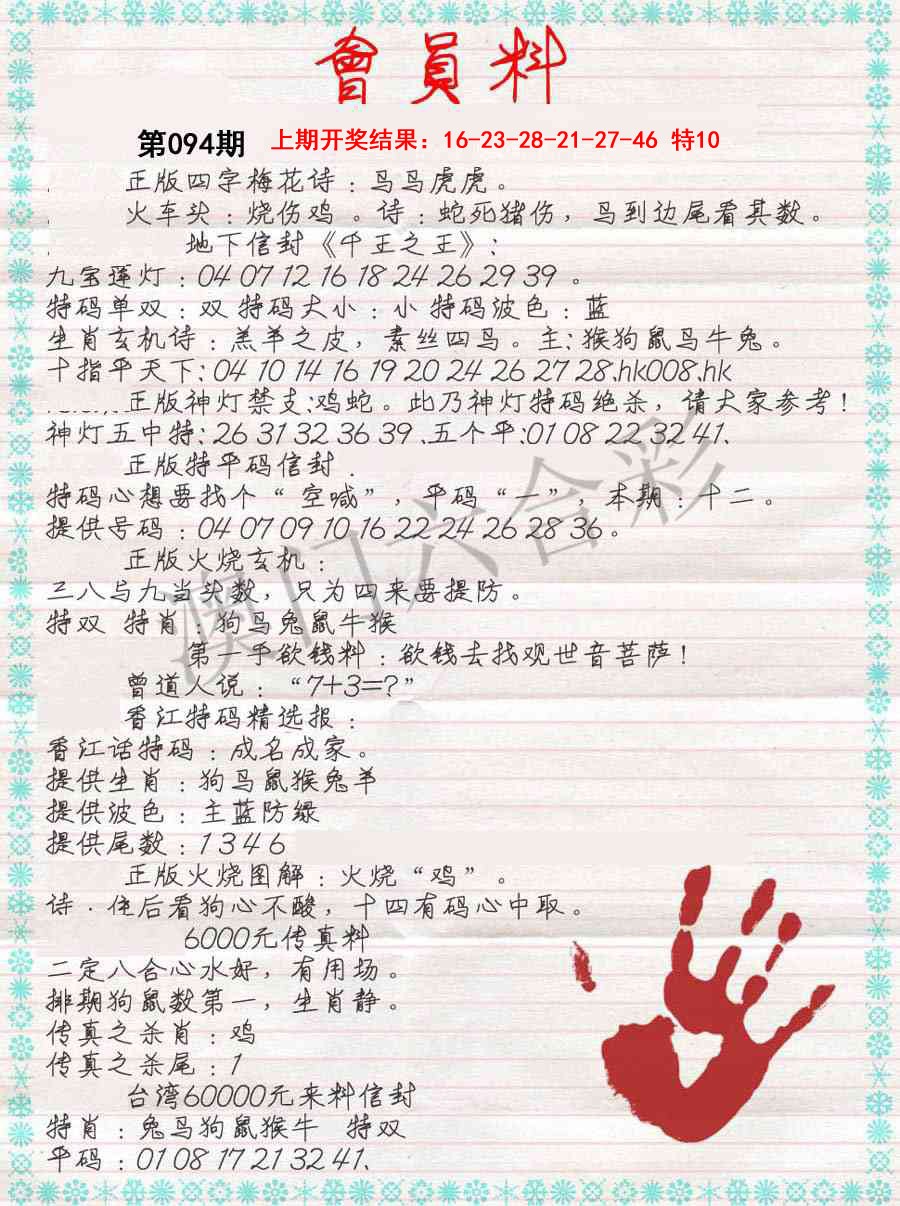 會員料
第094期 上期开奖结果：16-23-28-21-27-46 特10
正版四字梅花诗：鸟鸟虎虎。
火车头：烧伤鸡。诗：蛇死猪伤，鸟到边尾看其数。
地下信封《千王之王》：
九宝莲灯：04 07 12 16 18 24 26 29 39 。
特码单双：双 特码大小：小 特码波色：蓝
生肖玄机诗：羔羊之皮，素丝四鸟。主:猴狗鼠鸟牛兔。
十指平天下:04 10 14 16 19 20 24 26 27 28.hk008.hk
正版神灯禁支:鸡蛇。此乃神灯特码绝杀，请大家参考！
神灯五中特:26 31 32 36 39 、五个平:01 08 22 32 41、
正版特平码信封．
特码心想要找个“空喊”，平码“一”，本期：十二。
提供号码：04 07 09 10 16 22 24 26 28 36。
正版火烧玄机：
三八与九当头数，只为四来要提防。
特双 特肖：狗鸟兔鼠牛猴
第一手欲钱料：欲钱去找观世音菩萨！
曾道人说：“7+3=?”
香江特码精选报：
香江话特码：成名成家。
提供生肖：狗鸟鼠猴兔羊
提供波色：主蓝防绿
提供尾数：1 3 4 6
正版火烧图解：火烧“鸡”。
诗．住后看狗心不酸，十四有码心中取。
6000元传真料
二定八合心水好，有用场。
排期狗鼠数第一，生肖静。
传真之杀肖：鸡
传真之杀尾：1
台湾60000元来料信封
特肖：兔鸟狗鼠猴牛 特双
平码：01 08 17 21 32 41、
澳门六合彩